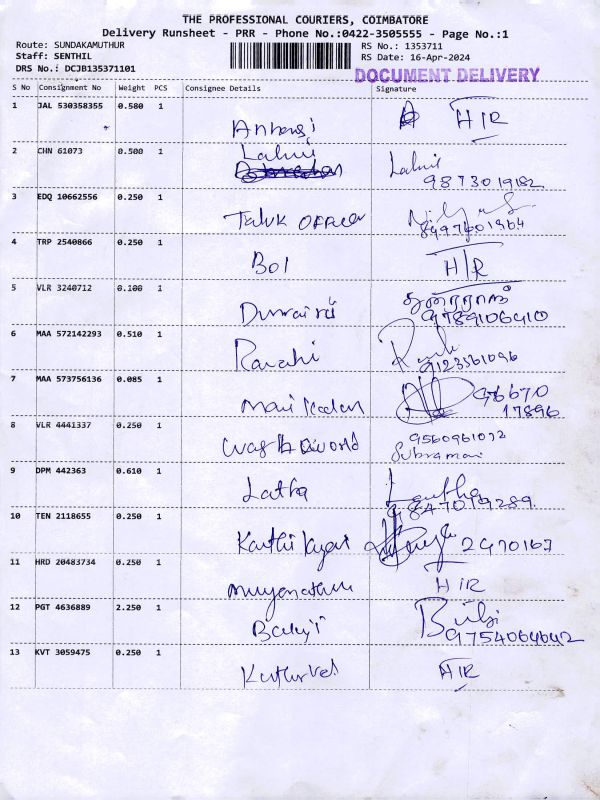 THE PROFESSIONAL COURIERS, COIMBATORE
Delivery Runsheet - PRR - Phone No.:0422-3505555 - Page No.:1
Route: SUNDAKAMUTHUR RS No.: 1353711
Staff: SENTHIL RS Date: 16-Apr-2024
DRS No.: DCJB135371101
DOCUMENT DELIVERY
S No Consignment No Weight PCS Consignee Details Signature
1 JAL 530358355 0.580 1
H/R
2 CHN 61073 0.500 1
Lahni
9873019182
3 EDQ 10662556 0.250 1
Taluk OFFicer
4 TRP 2540866 0.250 1
BOI H/R
5 VLR 3240712 0.100 1
Durrairaj
9789106410
6 MAA 572142293 0.510 1
9123561096
7 MAA 573756136 0.085 1
97667017896
8 VLR 4441337 0.250 1
world
Subramani
9 DPM 442363 0.610 1
Latha Lautha
8847019289
10 TEN 2118655 0.250 1
2470167
11 HRD 20483734 0.250 1
H/R
12 PGT 4636889 2.250 1
Balaji
9754064642
13 KVT 3059475 0.250 1
Kathirvel H/R